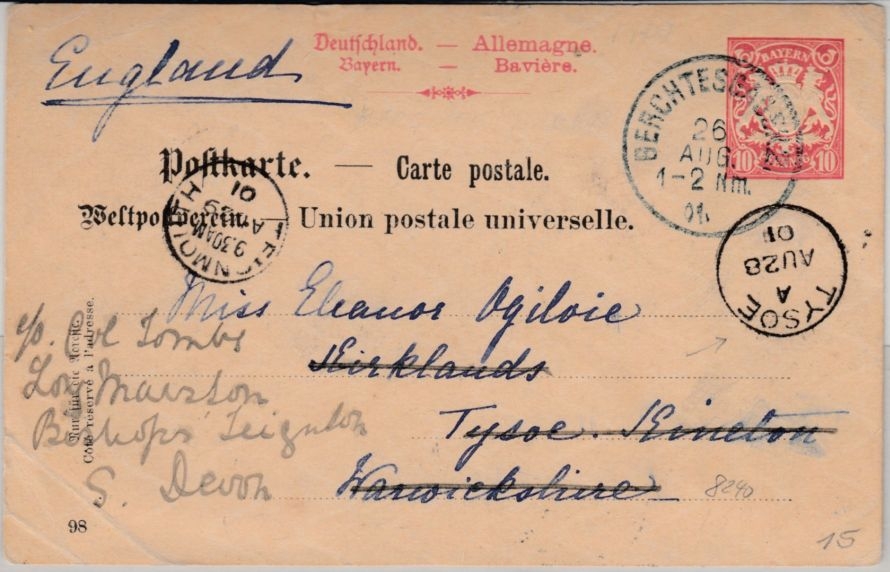 Deutschland. — Allemagne.
Bayern. — Bavière.
England
BAYERN
10 PFENNIG 10
BERCHTESGADEN
26
AUG.
1-2 Nm.
01.
Postkarte. — Carte postale.
Weltpostverein. — Union postale universelle.
TEIGNMOUTH
9.30AM
AU 29
01
TYSOE
A
AU 28
01
Miss Eleanor Ogilvie
Kirklands
Tysoe. Kineton
Warwickshire
c/o. Col Tombs
Marston
Bishops Teignton
S. Devon
Nur für die Adresse.
Côté réservé à l'adresse.
98
8240
15